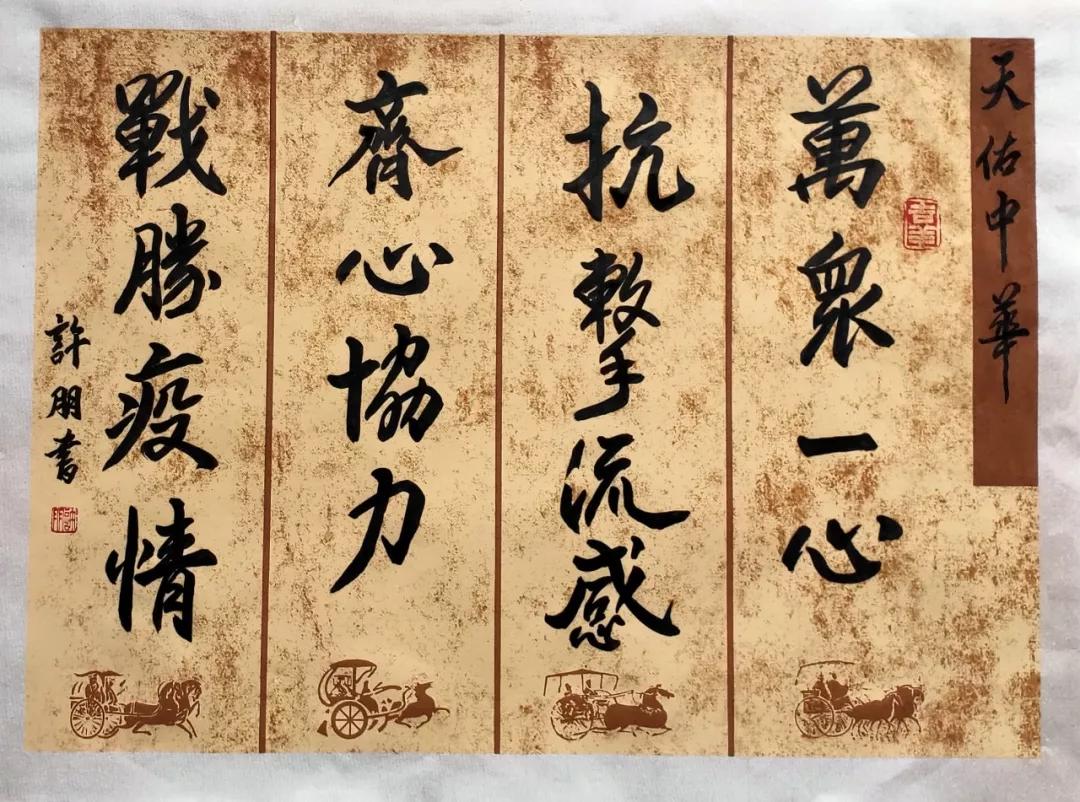 天佑中華
萬衆一心
抗擊流感
齊心協力
戰勝疫情
許朋書